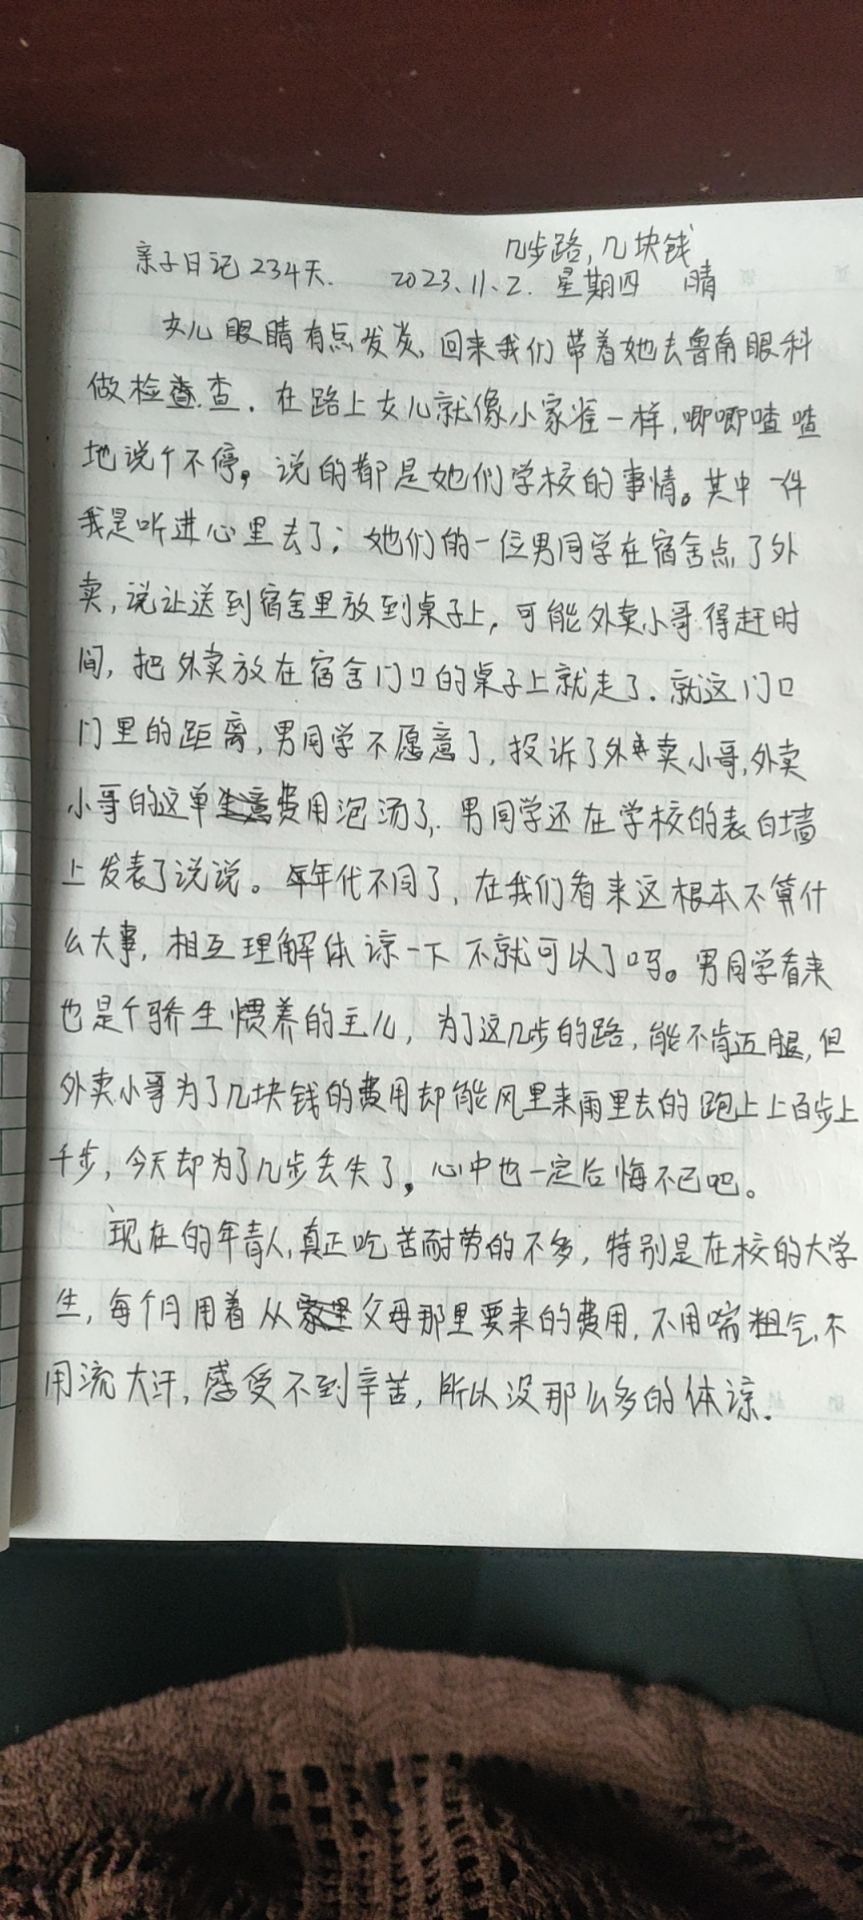 几步路,几块钱
亲子日记234天. 2023、11、2. 星期四 晴
女儿眼睛有点发炎,回来我们带着她去鲁南眼科
做检查.在路上女儿就像小家雀一样,唧唧喳喳
地说个不停。说的都是她们学校的事情。其中一件
我是听进心里去了:她们的一位男同学在宿舍点了外
卖,说让送到宿舍里放到桌子上,可能外卖小哥得赶时
间,把外卖放在宿舍门口的桌子上就走了.就这门口
门里的距离,男同学不愿意了,投诉了外卖小哥,外卖
小哥的这单费用泡汤了.男同学还在学校的表白墙
上发表了说说。年代不同了,在我们看来这根本不算什
么大事,相互理解体谅一下不就可以了吗。男同学看来
也是个骄生惯养的主儿,为了这几步的路,能不肯迈腿,但
外卖小哥为了几块钱的费用却能风里来雨里去的跑上上百步上
千步,今天却为了几步丢失了,心中也一定后悔不已吧。
现在的年青人,真正吃苦耐劳的不多,特别是在校的大学
生,每个月用着从父母那里要来的费用,不用喘粗气,不
用流大汗,感受不到辛苦,所以没那么多的体谅.